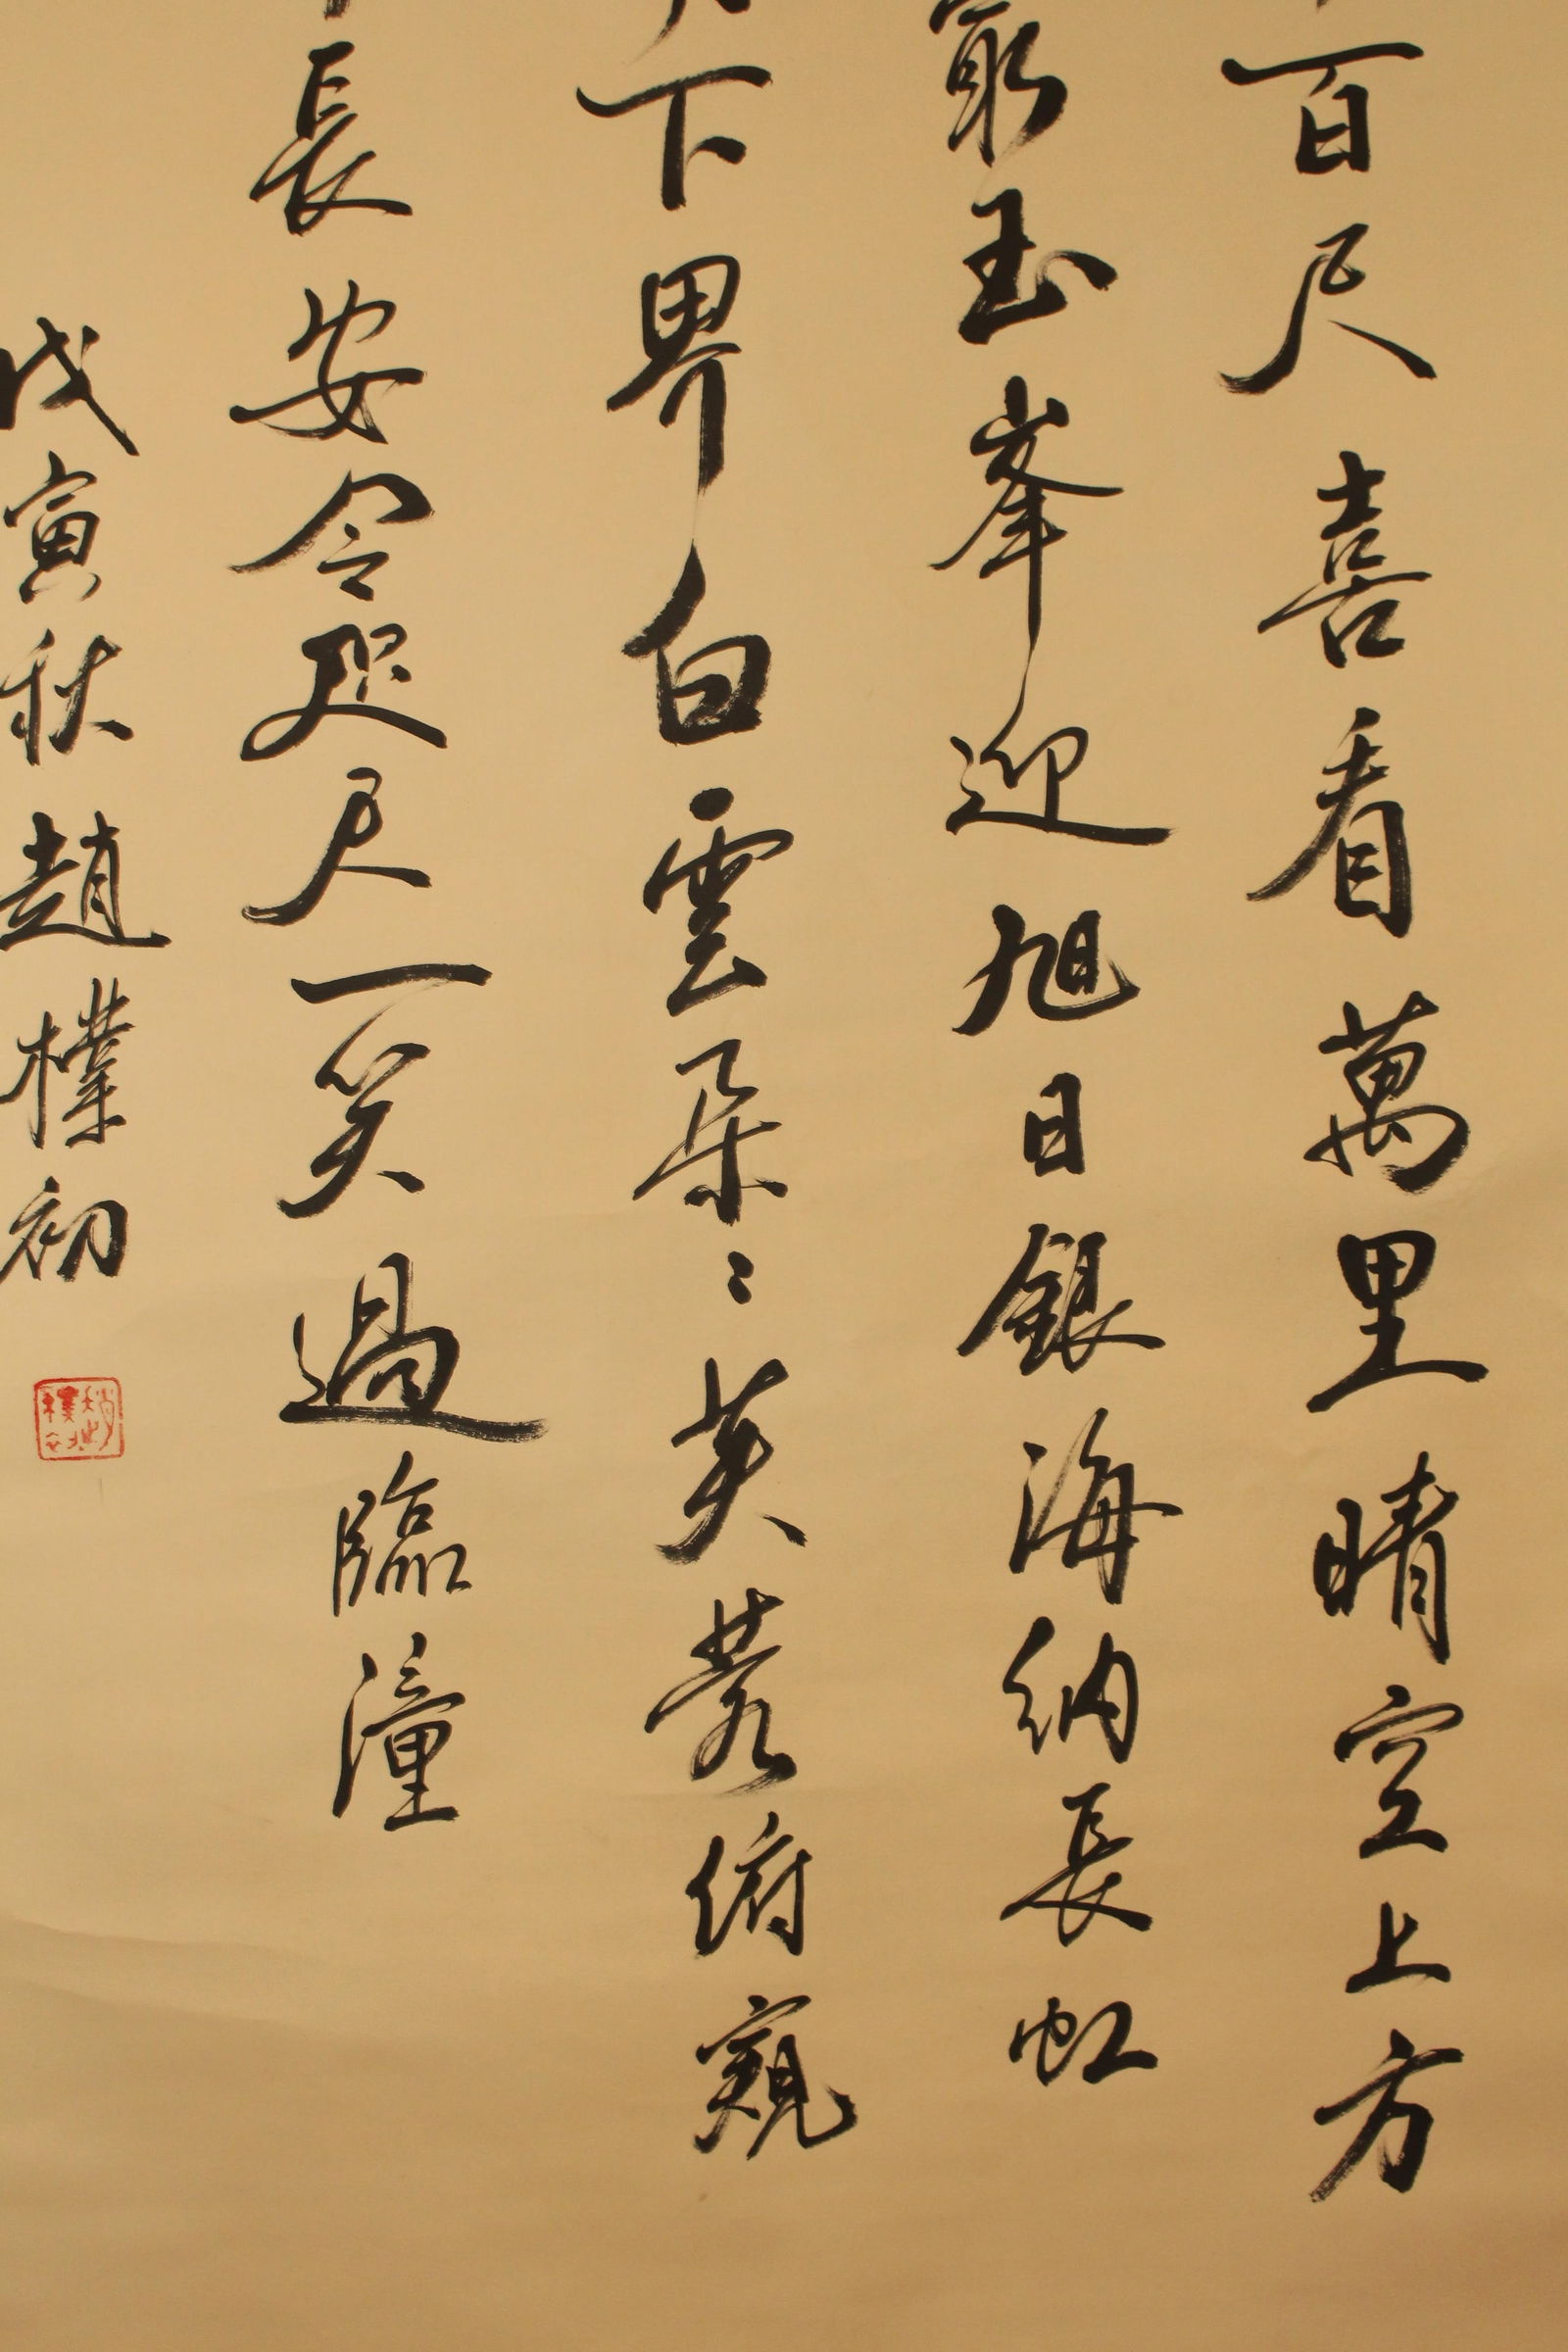 百尺喜看萬里晴空上方
最玉峯迎旭日銀海納長虹
下界白雲朵〻芙蓉俯窺
長安令咫尺一笑過臨潼
戊寅秋趙樸初